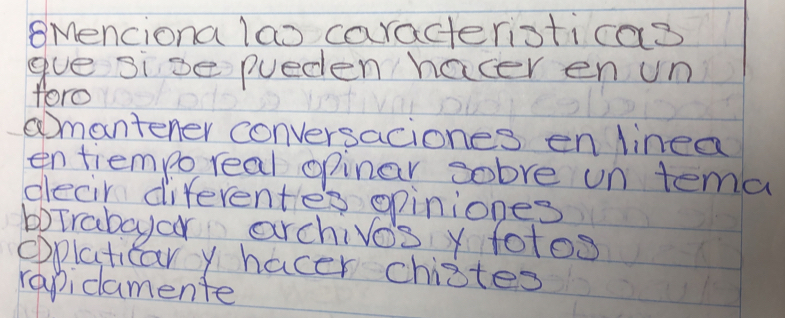 8 Menciona las caracteristicas
que si se pueden hacer en un
foro
a) mantener conversaciones en linea
en tiempo real opinar sobre un tema
decir diferentes opiniones
b) Trabajar archivos y fotos
c) platicar y hacer chistes
rapidamente